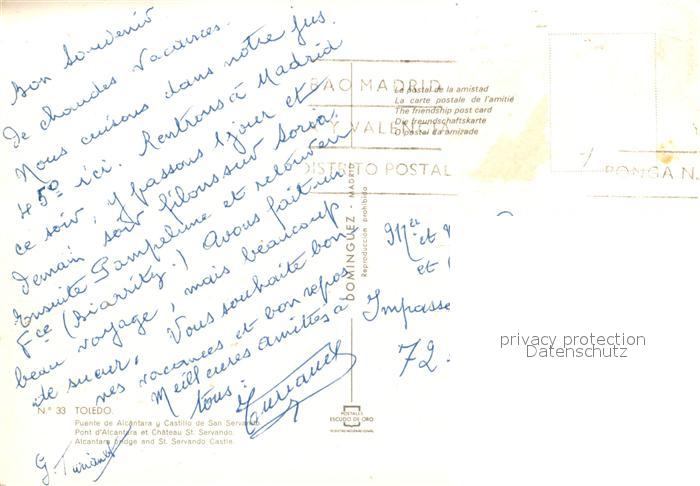 Bon Souvenir
de chaudes vacances.
Nous cuisons dans notre jus.
45º ici. Rentrons à Madrid
ce soir, y passons 1 jour et
demain soir filons sur Soria
Ensuite Pampelune et retour en
Fce (Biarritz.) Avons fait un
beau voyage, mais beaucoup
de sueur. Vous souhaite bonnes
vacances et bon repos
Meilleures amitiés à
tous.
G. Turianel
BAO MADRID
Y VALEN
DISTRITO POSTAL
PONGA N.
La postal de la amistad
La carte postale de l'amitié
The friendship post card
Die freundschaftskarte
O postal da amizade
DOMINGUEZ - MADRID
Reproducción prohibida
et
et
Impasse
72.
privacy protection
Datenschutz
POSTALES
ESCUDO DE ORO
N.º 33 TOLEDO.
Puente de Alcántara y Castillo de San Servando.
Pont d'Alcantara et Château St. Servando.
Alcantara bridge and St. Servando Castle.